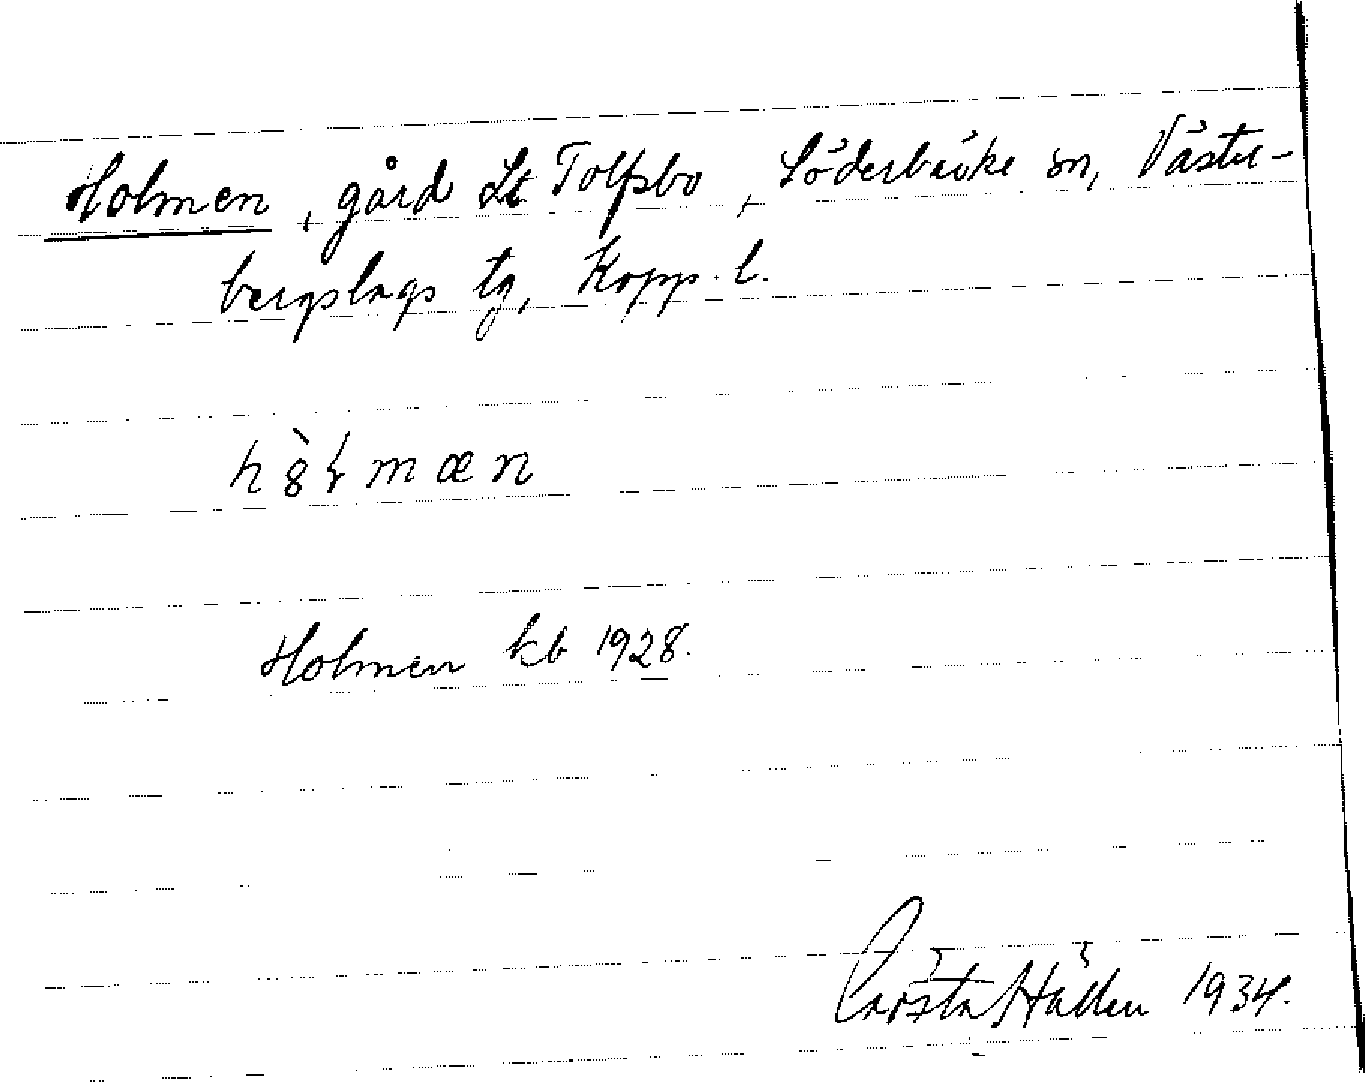 Holmen, gård St. Tolfsbo, Söderbärke sn, Väster-
bergslags tg, Kopp. l.
h 8̀ ł m æ n
Holmen kb 1928.
Hällen 1934.